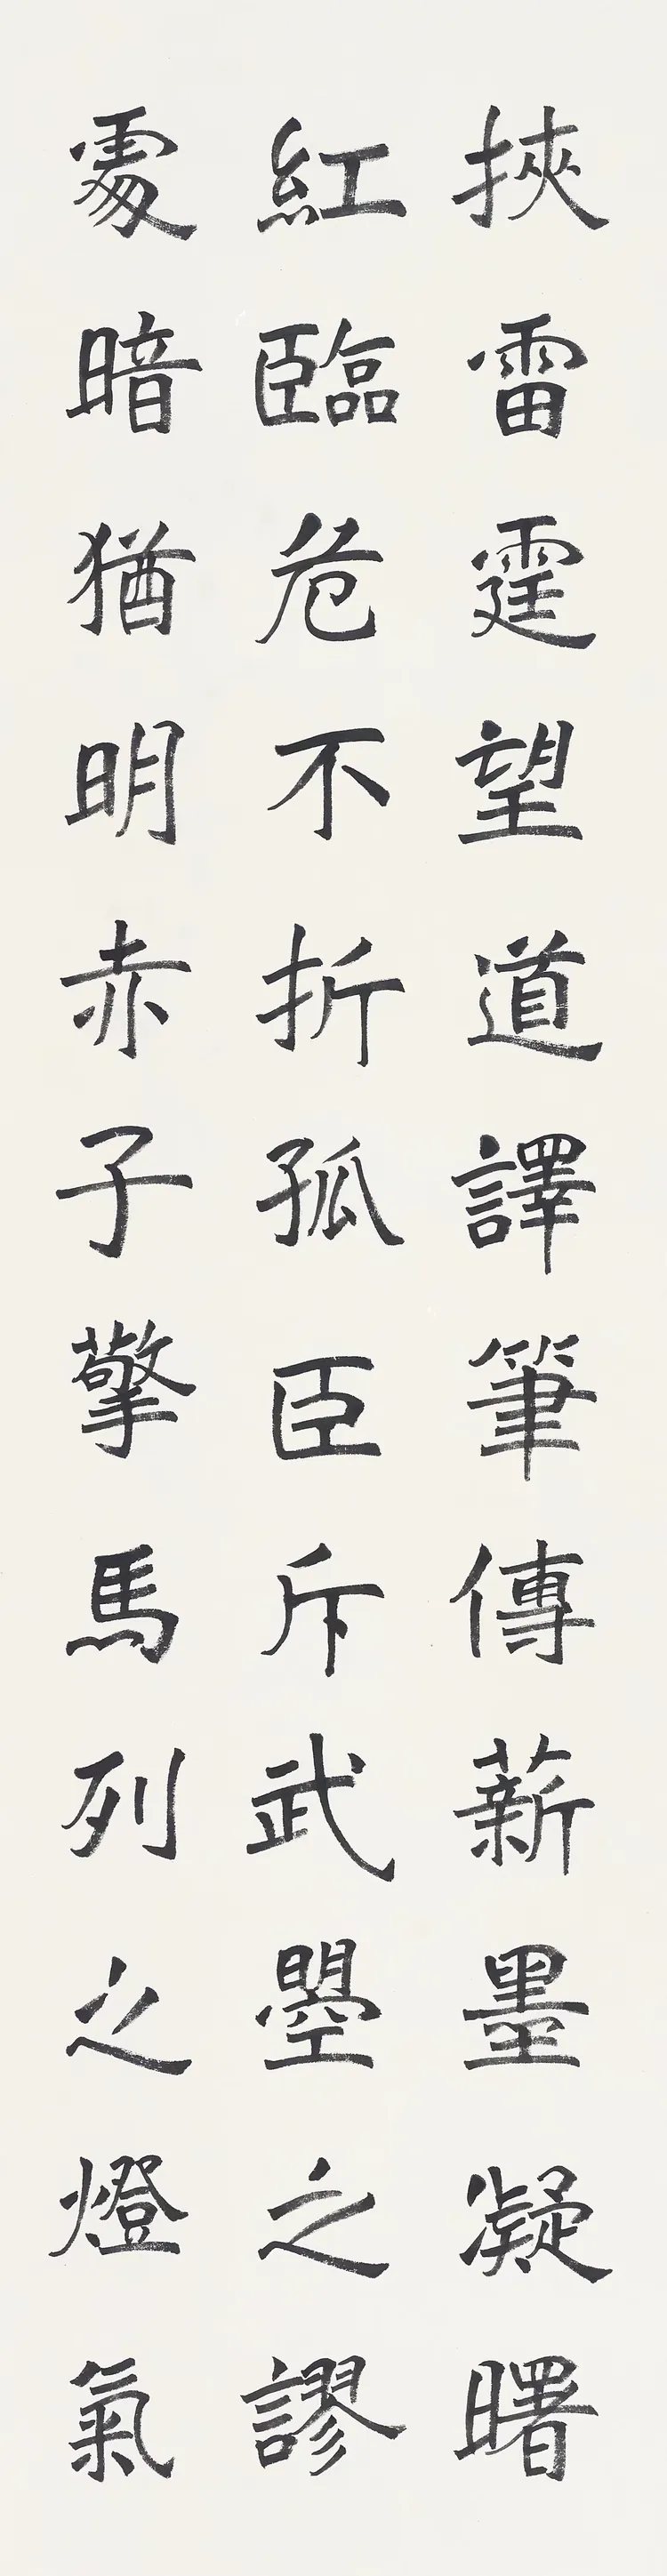 挾雷霆望道譯筆傳薪墨凝曙
紅臨危不折孤臣斥武曌之謬
處暗猶明赤子擎馬列之燈氣